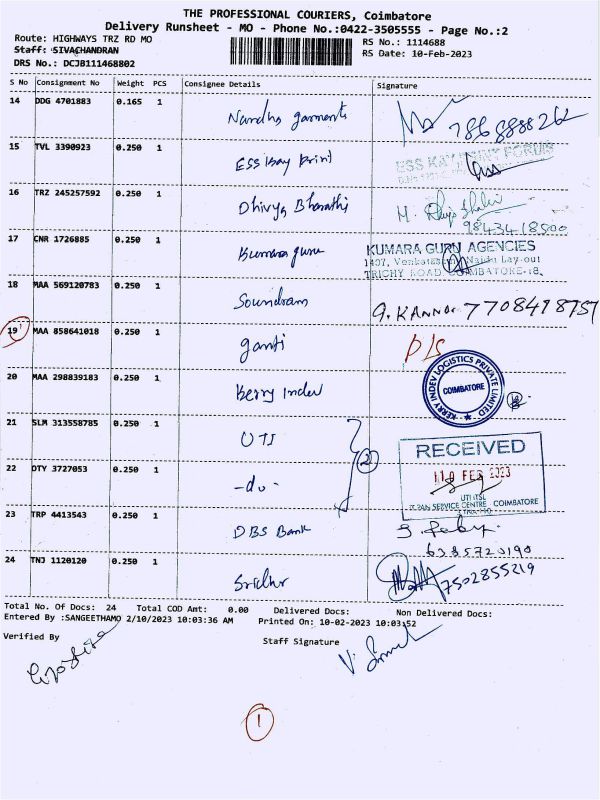 THE PROFESSIONAL COURIERS, Coimbatore
Delivery Runsheet - MO - Phone No.:0422-3505555 - Page No.:2
Route: HIGHWAYS TRZ RD MO
RS No.: 1114688
Staff: SIVACHANDRAN
RS Date: 10-Feb-2023
DRS No.: DCJB111468802
S No Consignment No Weight PCS Consignee Details Signature
14 DDG 4701883 0.165 1 Nandhu garments 7868888262
15 TVL 3390923 0.250 1 ESS Kay Print
16 TRZ 245257592 0.250 1 Dhivya Bharathi
9843418500
17 CNR 1726885 0.250 1 Kumara guru KUMARA GURU AGENCIES
1407, Naidu Lay-out
TRICHY ROAD, COIMBATORE-18.
18 MAA 569120783 0.250 1 Soundram G. KANNAN
19 MAA 858641018 0.250 1 ganti D/s
20 MAA 298839183 0.250 1 Kerry Indev KERRY INDEV LOGISTICS PRIVATE LIMITED COIMBATORE
21 SLM 313558785 0.250 1 UTI 2 RECEIVED
22 DTY 3727053 0.250 1 -do- 10 FEB 2023
UTI ITSL
PAN SERVICE CENTRE COIMBATORE
23 TRP 4413543 0.250 1 DBS Bank
6385720190
24 TNJ 1120120 0.250 1 Sridhr 7502855219
Total No. Of Docs: 24 Total COD Amt: 0.00 Delivered Docs: Non Delivered Docs:
Entered By :SANGEETHAMO 2/10/2023 10:03:36 AM Printed On: 10-02-2023 10:03:52
Verified By Staff Signature
1